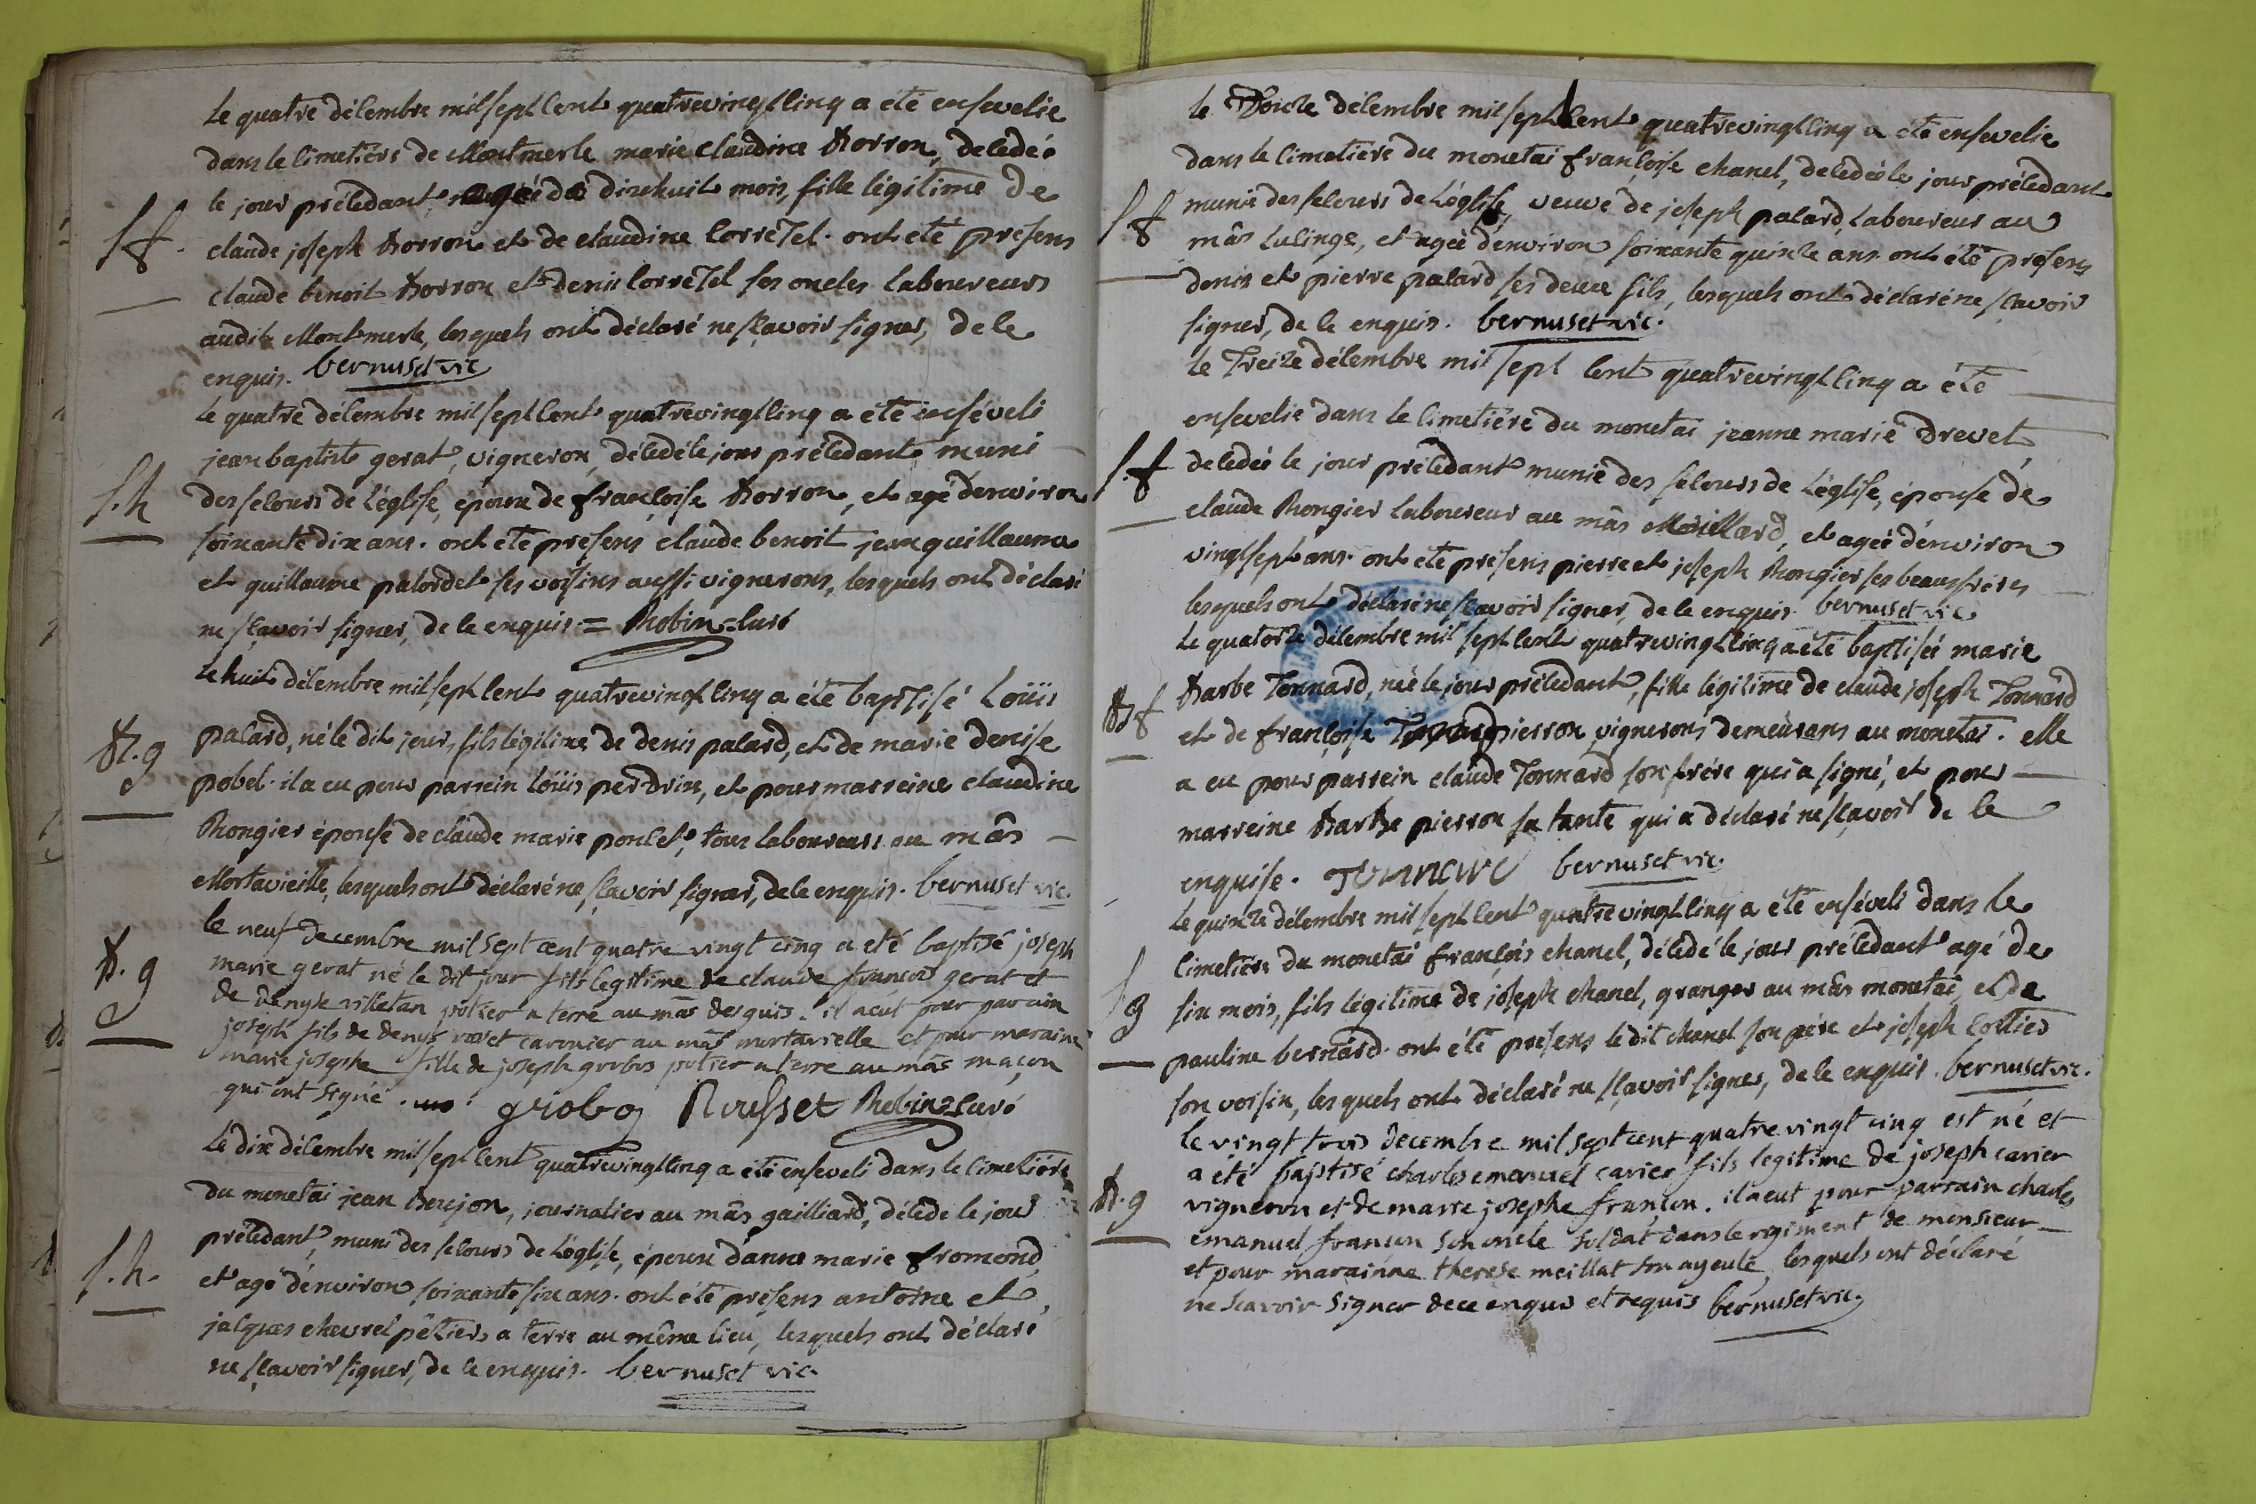 le quatre décembre mil sept cent quatrevingt cinq a été ensevelie
dans le cimetiere de Montmerle marie claudine Borron, decedée
le jour précedant agée de dixhuit mois, fille légitime de
S.f.
claude joseph Borron et de claudine Corretel. ont été presens
claude benoit Borron et denis Corretel ses oncles laboureurs
audit Montmerle, lesquels ont déclaré ne sçavoir signer, de ce
enquis. bernuset vic
le quatre décembre mil sept cent quatrevingt cinq a été enséveli
jean baptiste gerat, vigneron, décedé le jour précedant muni
S.h
des secours de l'église, époux de françoise Borron, et agé d'environ
soixante dix ans. ont été présens claude benoit jean guillaume
et guillaume palordet ses voisins aussi vignerons, lesquels ont déclaré
ne sçavoir signer, de ce enquis = Robin curé
le huit décembre mil sept cent quatrevingt cinq a été baptisé Loüis
B.g
palard, né le dit jour, fils légitime de denis palard, et de marie denise
pobel. il a eu pour parrein loüis perdrix, et pour marreine claudine
Rongier épouse de claude marie poncet, tous laboureurs au mâs
Mortavieille, lesquels ont déclaré ne sçavoir signer, de ce enquis. bernuset vic.
le neuf decembre mil sept cent quatre vingt cinq a eté baptisé joseph
B.g
marie gerat né le dit jour fils legitime de claude françois gerat et
de denyse villetan potier a terre au mas desguis. il a eut pour parrain
joseph fils de denys roset caronier au mas mortavielle et pour maraine
marie josephe fille de joseph grobos potier a terre au mâs maçon
qui ont signé. groboz Rousset Robin curé
Le dix décembre mil sept cent quatrevingt cinq a été enseveli dans le cimetiére
du monetai jean Borjon, journalier au mâs gailliard, décédé le jour
précedant, muni des secours de l'église, époux danne marie fromond,
S.h.
et agé d'environ soixante six ans. ont été présens antoine et
jacques chevrel pôtiers a terre au même lieu, lesquels ont déclaré
ne sçavoir signer, de ce enquis. bernuset vic.
le Douze décembre mil sept cent quatrevingt cinq a été ensevelie
dans le cimetiére du monetai françoise chanel, decedée le jour précedant
S f
munie des secours de l'église, veuve de joseph palard, laboureur au
mâs Lulinge, et agée d'environ soixante quinze ans. ont été présens
denis et pierre palard ses deux fils, lesquels ont déclaré ne sçavoir
signer, de ce enquis. bernuset vic.
le Treize décembre mil sept cent quatrevingt cinq a été
ensevelie dans le cimetiére du monetai jeanne marie Drevet,
S.f
decedée le jour précedant munie des secours de l'église, épouse de
claude Rongier laboureur au mâs Moillard, et agée d'environ
vingt sept ans. ont été présens pierre et joseph Rongier ses beaux freres
lesquels ont déclaré ne sçavoir signer, de ce enquis. bernuset vic
le quatorze décembre mil sept cent quatrevingt cinq a été baptisée marie
B f
Barbe Tonnard, née le jour précedant, fille légitime de claude joseph Tonnard
et de françoise pierron vignerons demeurans au monetai. elle
a eu pour parrein claude Tonnard son frére qui a signé, et pour
marreine Barbe pierron sa tante qui a déclaré ne sçavoir de ce
enquise. bernuset vic.
le quinze décembre mil sept cent quatre vingt cinq a été enséveli dans le
cimetiére du monetai françois chanel, décedé le jour précedant agé de
S g
six mois, fils légitime de joseph chanel, granger au mâs monetai, et de
pauline bernard. ont été présens le dit chanel son pére et joseph Collied
son voisin, lesquels ont déclaré ne sçavoir signer, de ce enquis. bernuset vic.
le vingt trois decembre mil sept cent quatre vingt cinq est né et
a été baptisé charles emanuel carier fils legitime de joseph carier
B.g
vigneron et de marie josephe françon. il a eut pour parrain charles
emanuel françon son oncle soldat dans le regiment de monsieur
et pour marainne therese meillat son ayeule, lesquels ont déclaré
ne scavoir signer de ce enquis et requis bernuset vic.